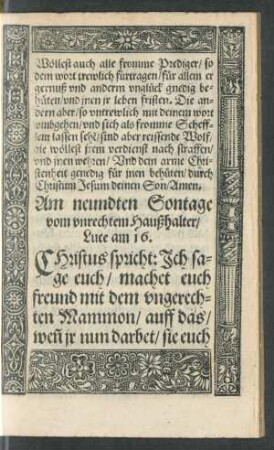 Wöllest auch alle fromme Prediger/ so
dem wort trewlich fürtragen/ für allem er
gernuß vnd anderm vnglück gnedig be-
hüten/ vnd jnen jr leben fristen. Die an-
dern aber/ so vntrewlich mit deinem wort
vmbgehen/ vnd sich als fromme Scheff-
lein lassen sehē/ sind aber reissende Wolf-
fe/ wöllest jrem verdienst nach straffen/
vnd jnen wehren/ Vnd dein arme Chri-
stenheit genedig für jnen behüten/ durch
Christum Jesum deinen Son/ Amen.
Am neundten Sontage
vom vnrechtem Haußhalter/
Luce am 16.
CHristus spricht: Ich sa-
ge euch/ machet euch
freund mit dem vngerech-
ten Mammon/ auff das/
weñ jr nun darbet/ sie euch